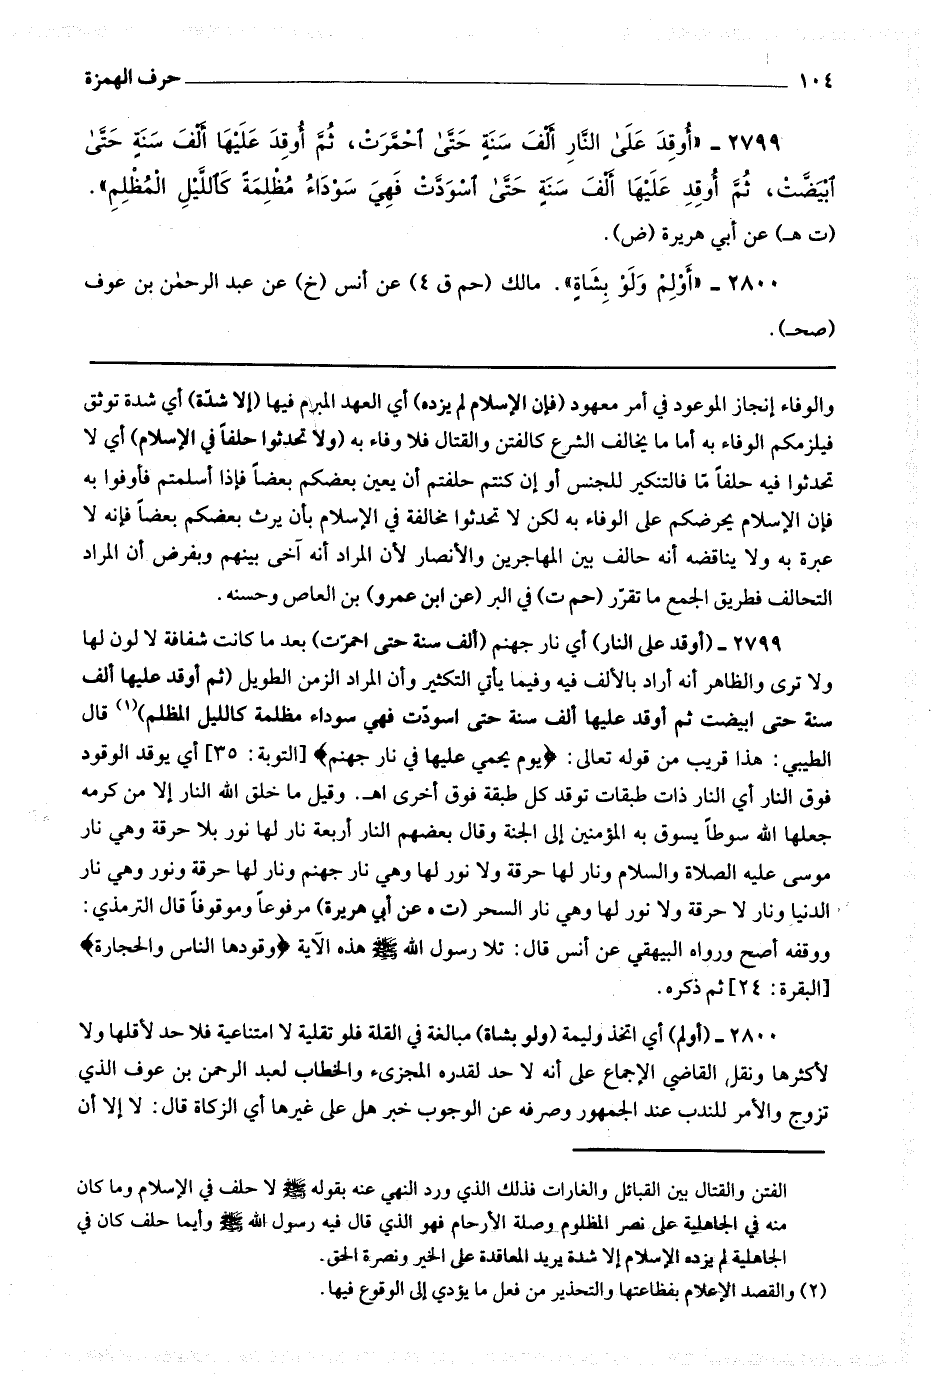 ١٠٤ حرف الهمزة
٢٧٩٩ ـ «أُوقِدَ عَلَىٰ النَّارِ أَلْفَ سَنَةٍ حَتَّىٰ ٱحْمَرَّتْ، ثُمَّ أُوقِدَ عَلَيْهَا أَلْفَ سَنَةٍ حَتَّىٰ
ٱبْيَضَّتْ، ثُمَّ أُوقِدِ عَلَيْهَا أَلْفَ سَنَةٍ حَتَّىٰ ٱسْوَدَّتْ فَهِيَ سَوْدَاءُ مُظْلِمَةً كَاللَّيْلِ الْمُظْلِمِ».
(ت هـ) عن أبي هريرة (ض).
٢٨٠٠ ـ «أَوْلِمْ وَلَوْ بِشَاةٍ». مالك (حم ق ٤) عن أنس (خ) عن عبد الرحمٰن بن عوف
(صحـ).
والوفاء إنجاز الموعود في أمر معهود (فإن الإسلام لم يزده) أي العهد المبرم فيها (إلا شدّة) أي شدة توثق
فيلزمكم الوفاء به أما ما يخالف الشرع كالفتن والقتال فلا وفاء به (ولا تحدثوا حلفاً في الإسلام) أي لا
تحدثوا فيه حلفاً مّا فالتنكير للجنس أو إن كنتم حلفتم أن يعين بعضكم بعضاً فإذا أسلمتم فأوفوا به
فإن الإسلام يحرضكم على الوفاء به لكن لا تحدثوا مخالفة في الإسلام بأن يرث بعضكم بعضاً فإنه لا
عبرة به ولا يناقضه أنه حالف بين المهاجرين والأنصار لأن المراد أنه آخى بينهم وبفرض أن المراد
التحالف فطريق الجمع ما تقرّر (حم ت) في البر (عن ابن عمرو) بن العاص وحسنه.
٢٧٩٩ ـ (أوقد على النار) أي نار جهنم (ألف سنة حتى احمرّت) بعد ما كانت شفافة لا لون لها
ولا ترى والظاهر أنه أراد بالألف فيه وفيما يأتي التكثير وأن المراد الزمن الطويل (ثم أوقد عليها ألف
سنة حتى ابيضت ثم أوقد عليها ألف سنة حتى اسودّت فهي سوداء مظلمة كالليل المظلم)(١) قال
الطيبي: هذا قريب من قوله تعالى: ﴿يوم يحمي عليها في نار جهنم﴾ [التوبة: ٣٥] أي يوقد الوقود
فوق النار أي النار ذات طبقات توقد كل طبقة فوق أخرى اهـ. وقيل ما خلق الله النار إلا من كرمه
جعلها الله سوطاً يسوق به المؤمنين إلى الجنة وقال بعضهم النار أربعة نار لها نور بلا حرقة وهي نار
موسى عليه الصلاة والسلام ونار لها حرقة ولا نور لها وهي نار جهنم ونار لها حرقة ونور وهي نار
الدنيا ونار لا حرقة ولا نور لها وهي نار السحر (ت ه عن أبي هريرة) مرفوعاً وموقوفاً قال الترمذي:
ووقفه أصح ورواه البيهقي عن أنس قال: تلا رسول الله ﷺ هذه الآية ﴿وقودها الناس والحجارة﴾
[البقرة: ٢٤] ثم ذكره.
٢٨٠٠ ـ (أولم) أي اتخذ وليمة (ولو بشاة) مبالغة في القلة فلو تقلية لا امتناعية فلا حد لأقلها ولا
لأكثرها ونقل القاضي الإجماع على أنه لا حد لقدره المجزىء والخطاب لعبد الرحمن بن عوف الذي
تزوج والأمر للندب عند الجمهور وصرفه عن الوجوب خبر هل على غيرها أي الزكاة قال: لا إلا أن
الفتن والقتال بين القبائل والغارات فذلك الذي ورد النهي عنه بقوله ﷺ لا حلف في الإسلام وما كان
منه في الجاهلية على نصر المظلوم وصلة الأرحام فهو الذي قال فيه رسول الله ﷺ وأيما حلف كان في
الجاهلية لم يزده الإسلام إلا شدة يريد المعاقدة على الخير ونصرة الحق.
(٢) والقصد الإعلام بفظاعتها والتحذير من فعل ما يؤدي إلى الوقوع فيها.